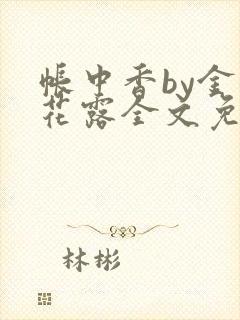 帐中香by金
花露全文免
林彬